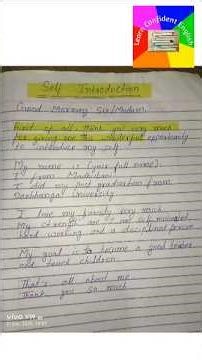 Learn Confident English
Self Introduction
Good Morning Sir/Madam.
First of all, thank you very much
for giving me this wonderful opportunity
to introduce my self
My name is (your full name).
I from Madhubani
I did my post graduation from
Darbhanga University
I love my family very much
My strength are I'm self motivated
hard working and a disciplined person
My goal is to become a good teacher
and teach children.
That's all about me
Thank you so much
vivo V